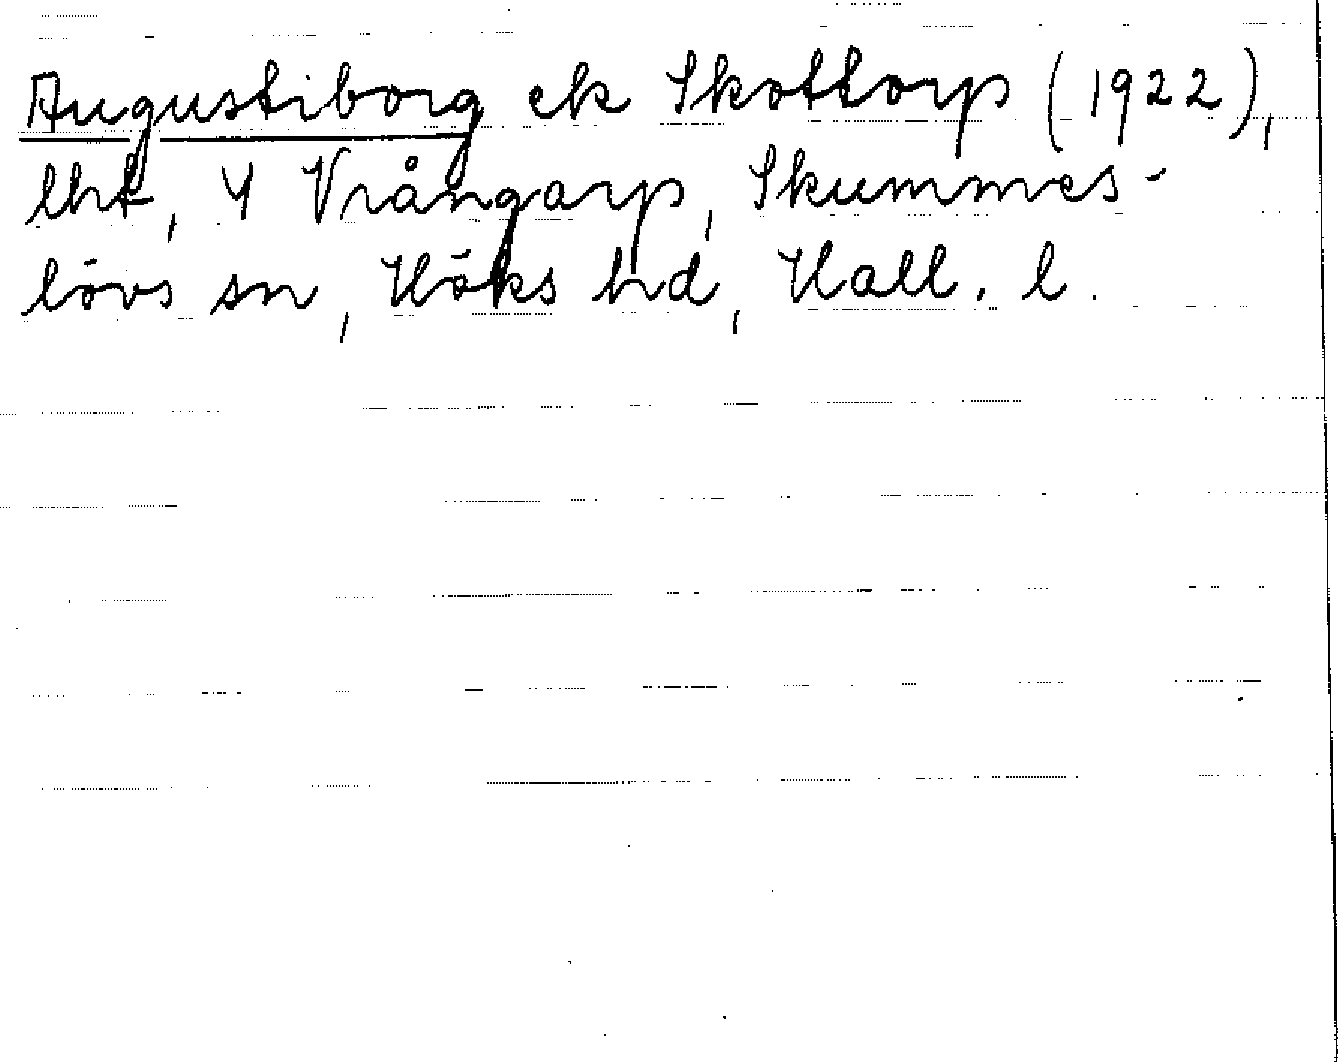 Augustiborg ek Skottorp (1922),
lht, 4 Vrångarp, Skummes-
lövs sn, Höks hd, Hall. l.